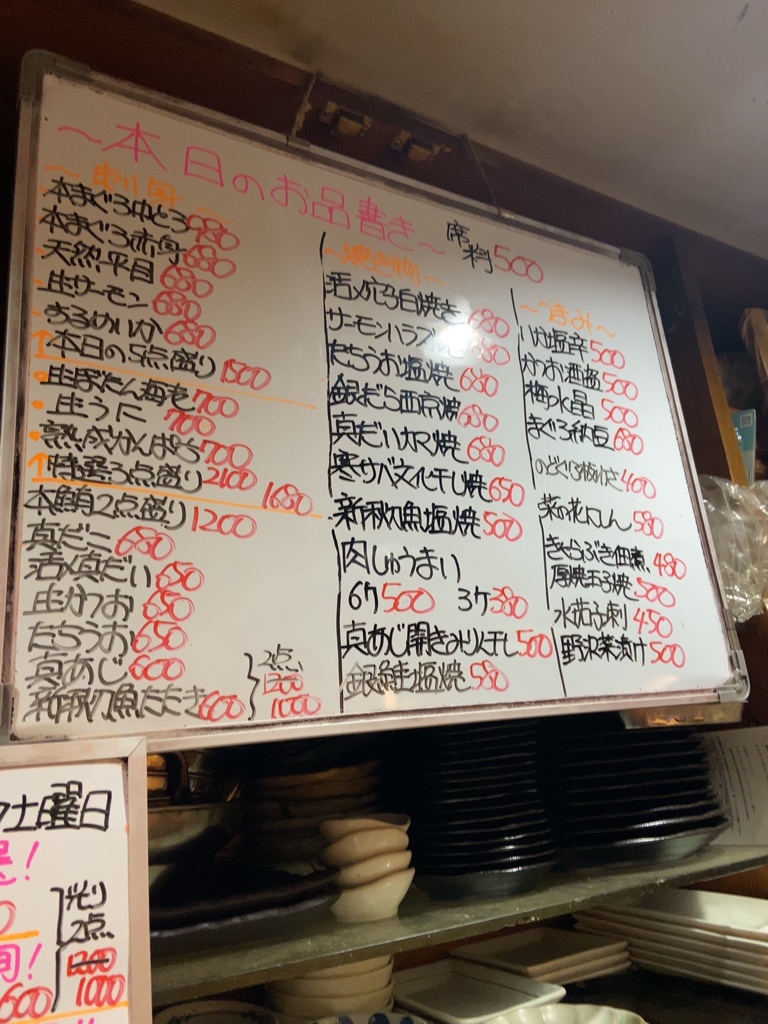 ～本日のお品書き～
席料500
～刺身～
本まぐろ中とろ980
本まぐろ赤身680
天然平目680
生サーモン680
するめいか680
本日の5点盛り1500
生ぼたん海老700
生うに700
熟成かんぱち700
特選3点盛り2100 1680
本鮪2点盛り1200
真だこ680
活〆真だい650
生かつお650
たちうお650
真あじ600
新秋刀魚たたき600
2点
1200
1000
～焼き物～
活〆穴子白焼き680
サーモンハラス
たちうお塩焼680
銀だら西京焼680
真だいカマ焼680
寒サバ文化干し焼650
新秋刀魚塩焼500
肉しゅうまい
6ケ500 3ケ380
真あじ開きみりん干し500
銀鮭塩焼580
～つまみ～
いか塩辛500
かつお酒盗500
梅水晶500
まぐろ納豆680
のどぐろ板わさ400
菜の花にしん580
きゃらぶき佃煮480
厚焼玉子焼500
水茄子刺450
野沢菜漬け500
土曜日
光り
2点
1200
1000
旬!
600